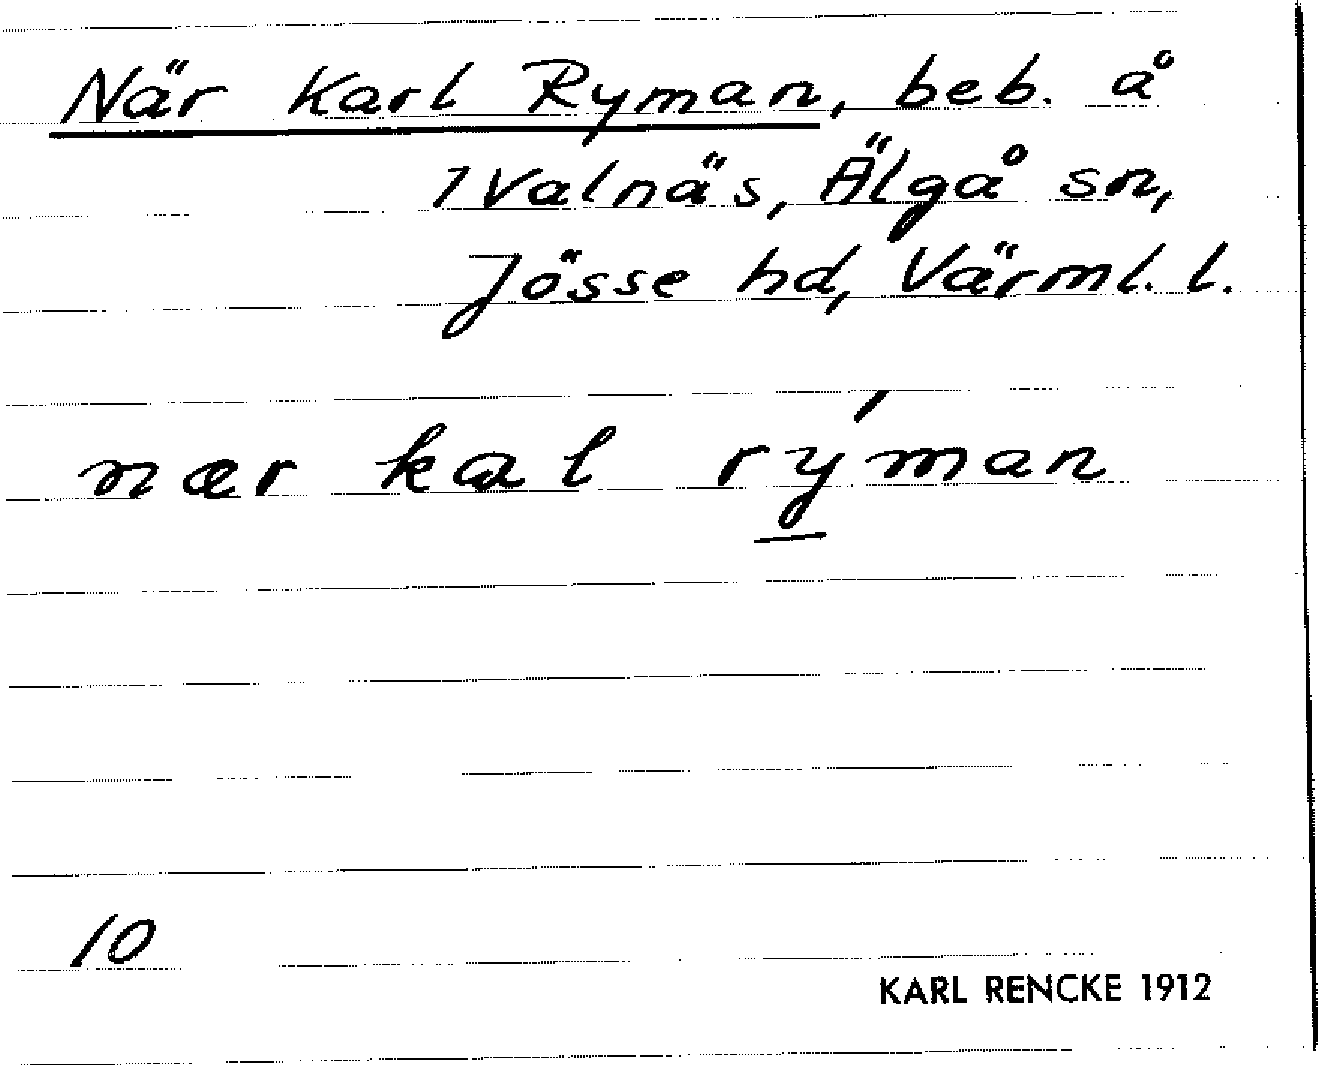 När Karl Ryman, beb. å
1 Valnäs, Älgå sn,
Jösse hd, Värml. l.
nær kal rýman
10
KARL RENCKE 1912